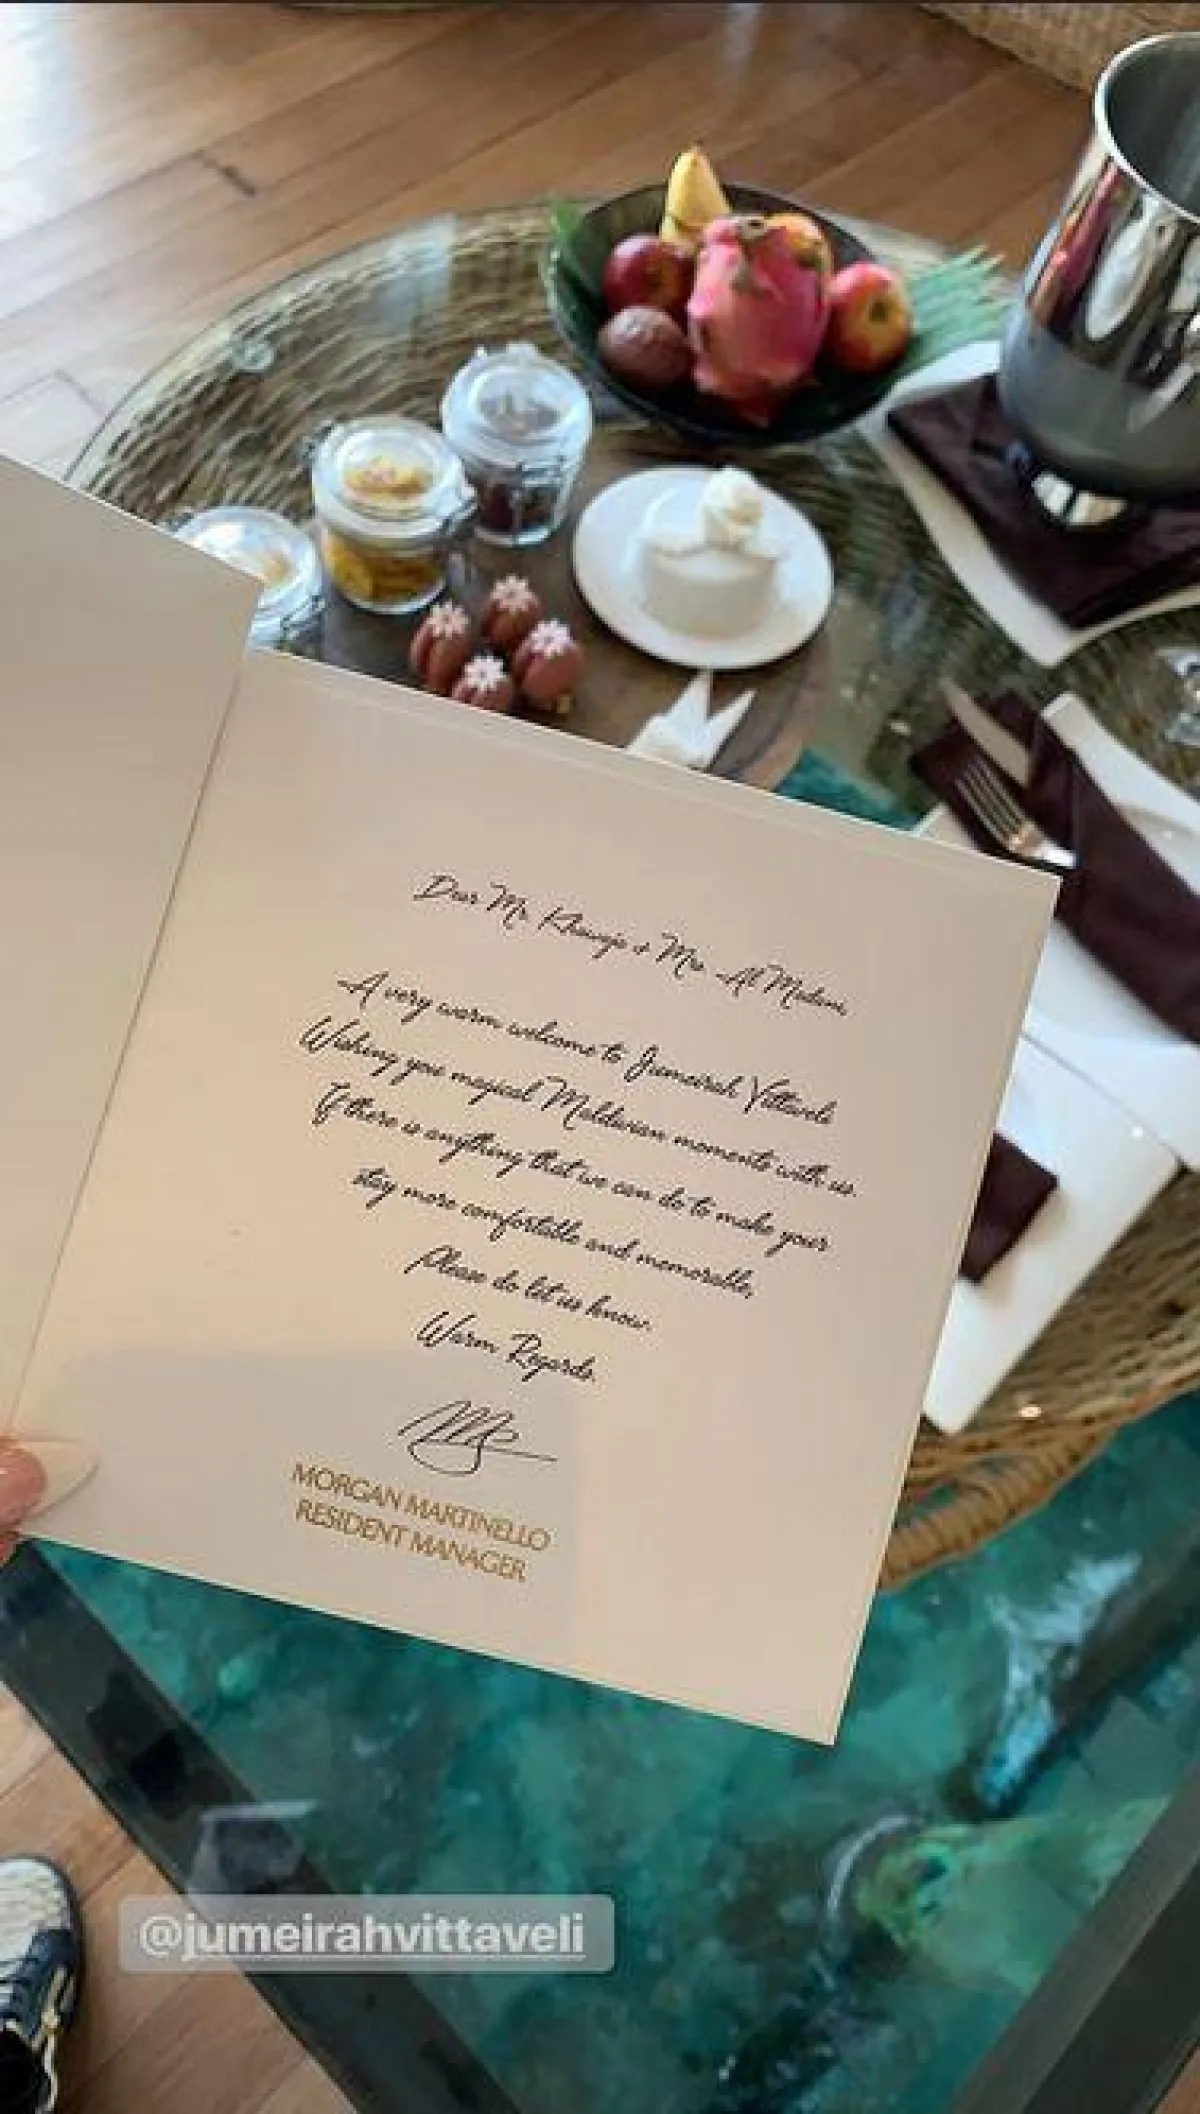 Dear Mr. Khawaja + Mrs. Al Madani,
A very warm welcome to Jumeirah Vittaveli
Wishing you magical Maldivian moments with us.
If there is anything that we can do to make your
stay more comfortable and memorable,
Please do let us know.
Warm Regards.
MORGAN MARTINELLO
RESIDENT MANAGER
@jumeirahvittaveli